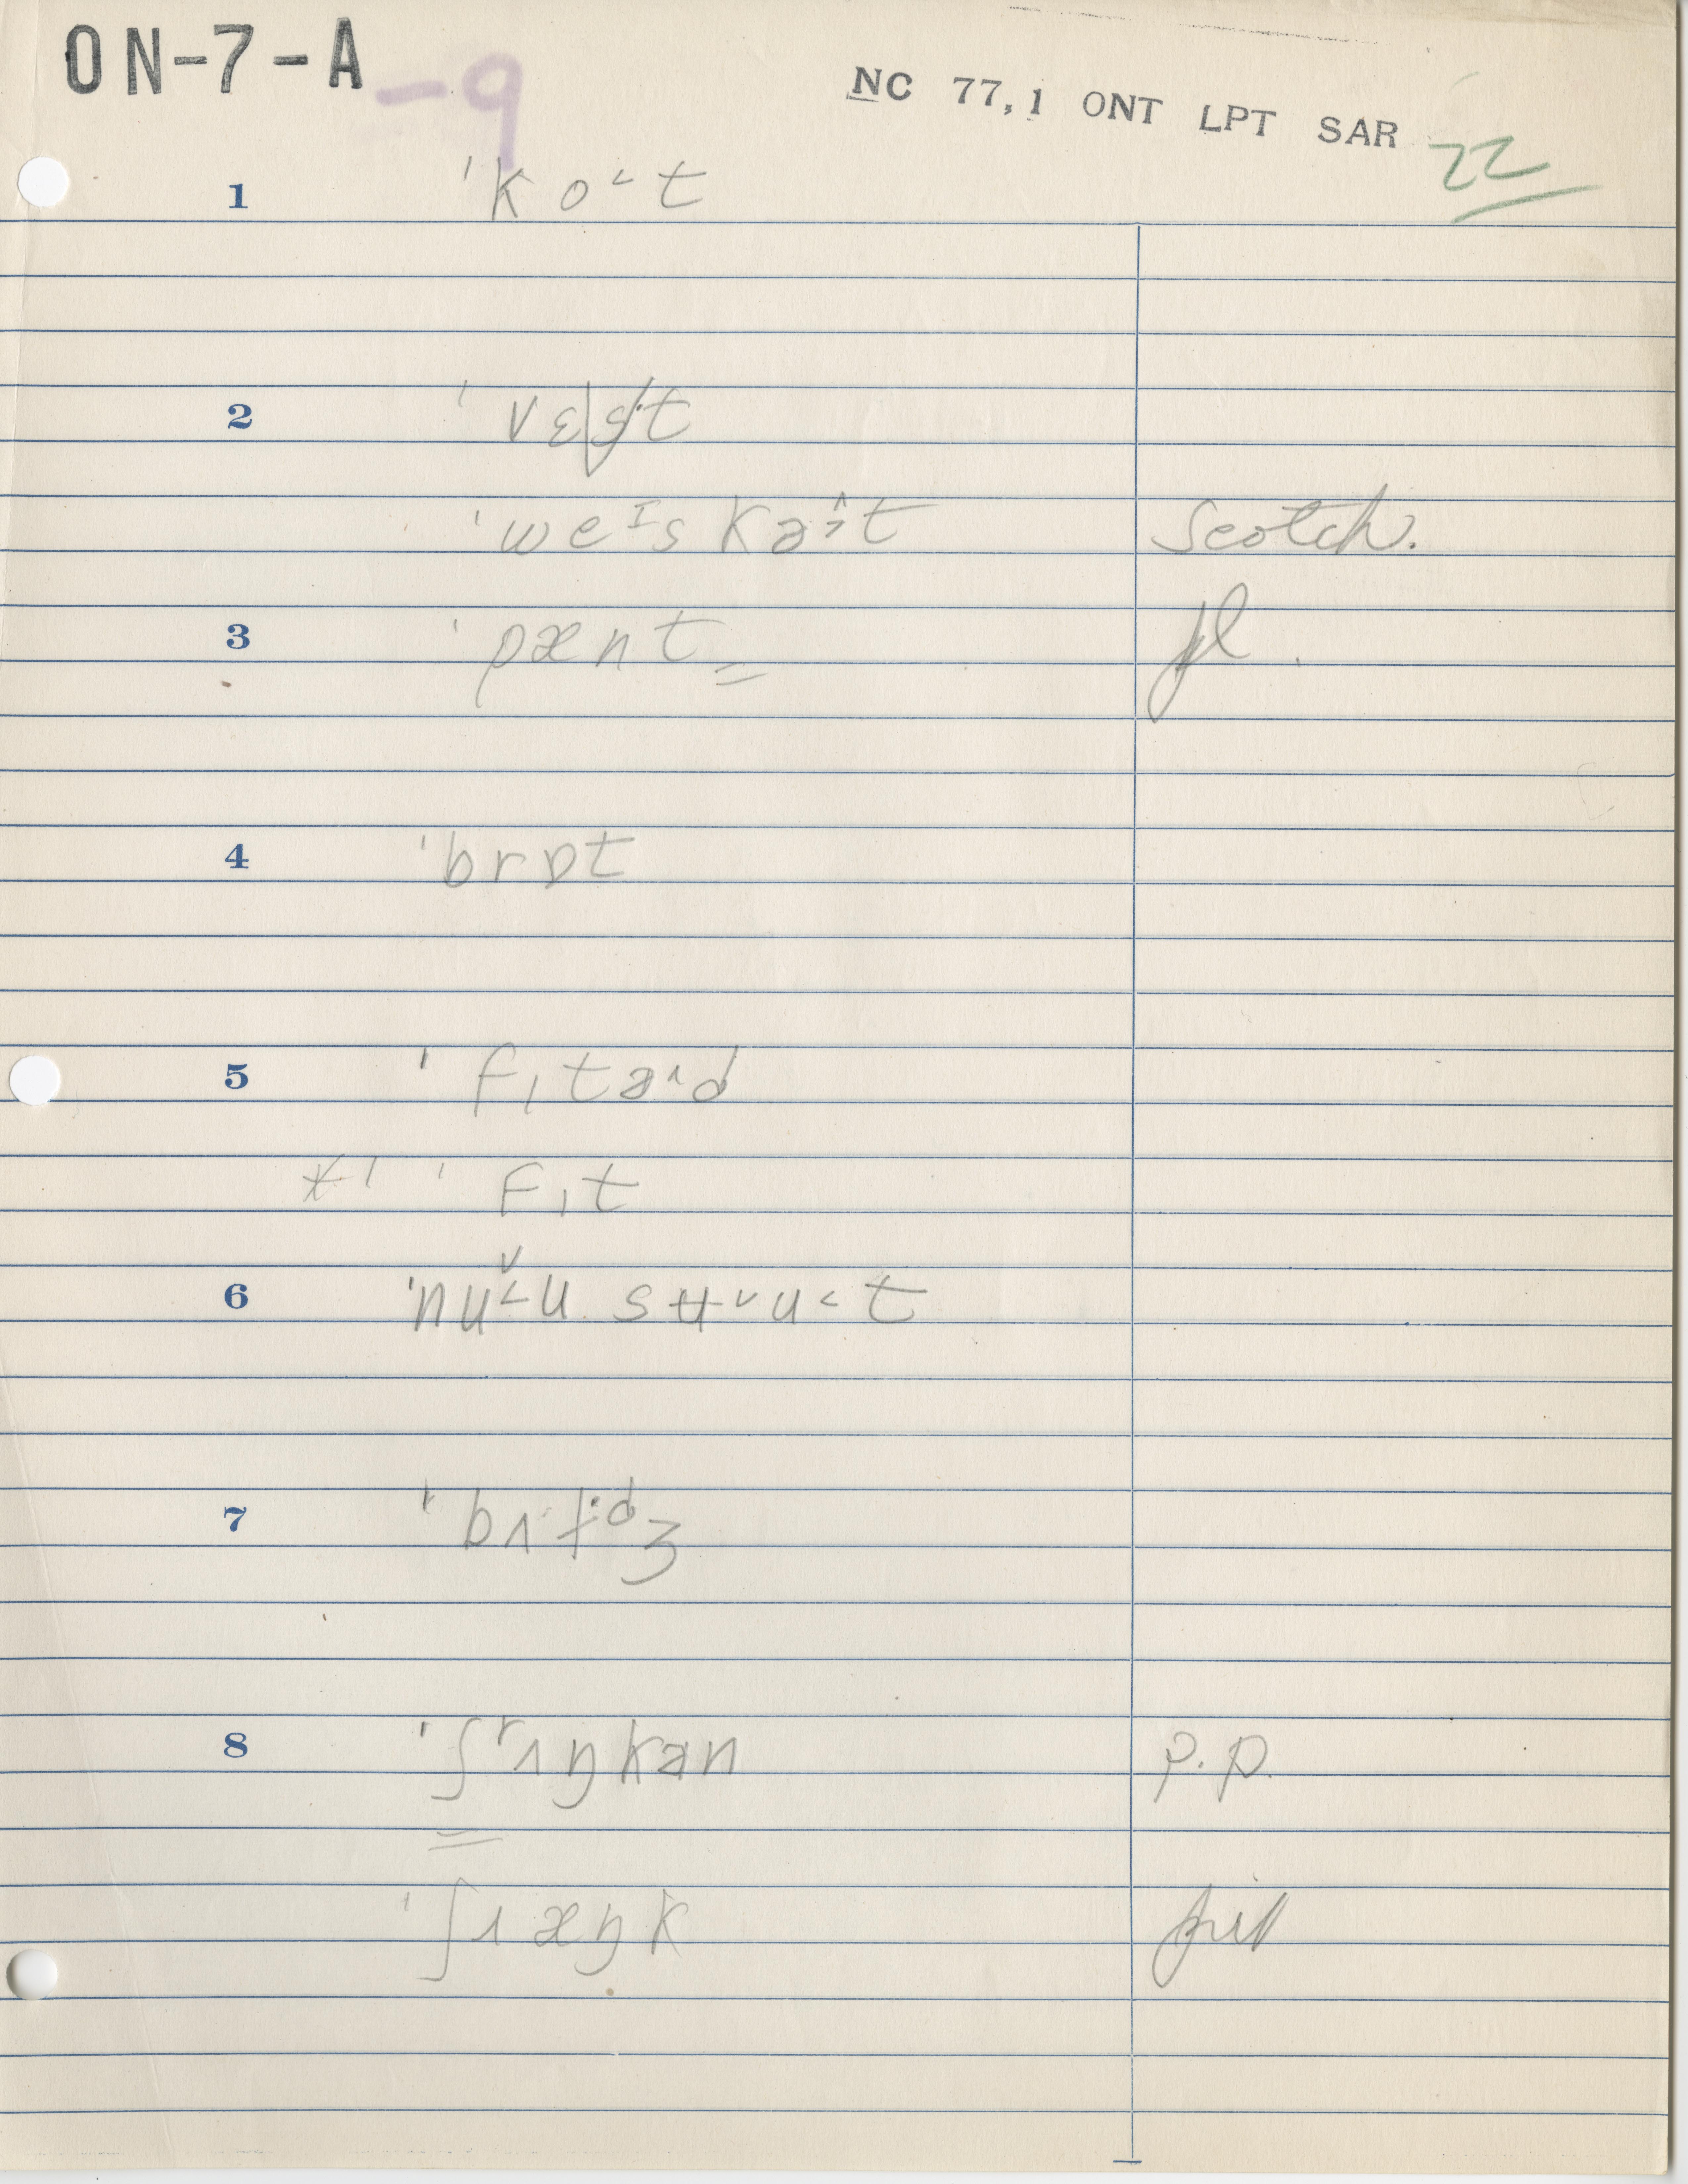 ON-7-A -9
NC 77,1 ONT LPT SAR 22
1 'ko˂t
2 'vɛst
'weɪskəˆ˃t Scotch.
3 'pænt pl.
4 'brɒt
5 'fɪtəʌd
*' 'fɪt
6 'nu˂u sʉ˅u˂t
7 'bʌt:dʒ
8 'ʃrɪŋkən p.p.
'ʃɹæŋk